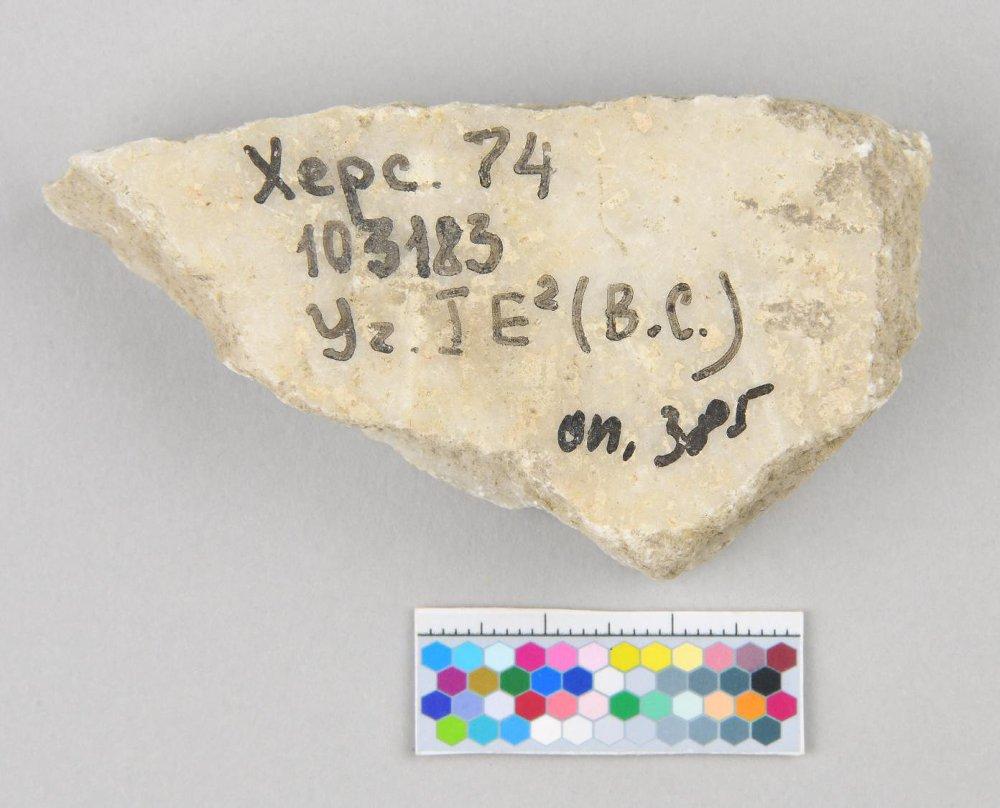 Херс. 74
103183
Уг. I E² (В.С.)
оп. 385